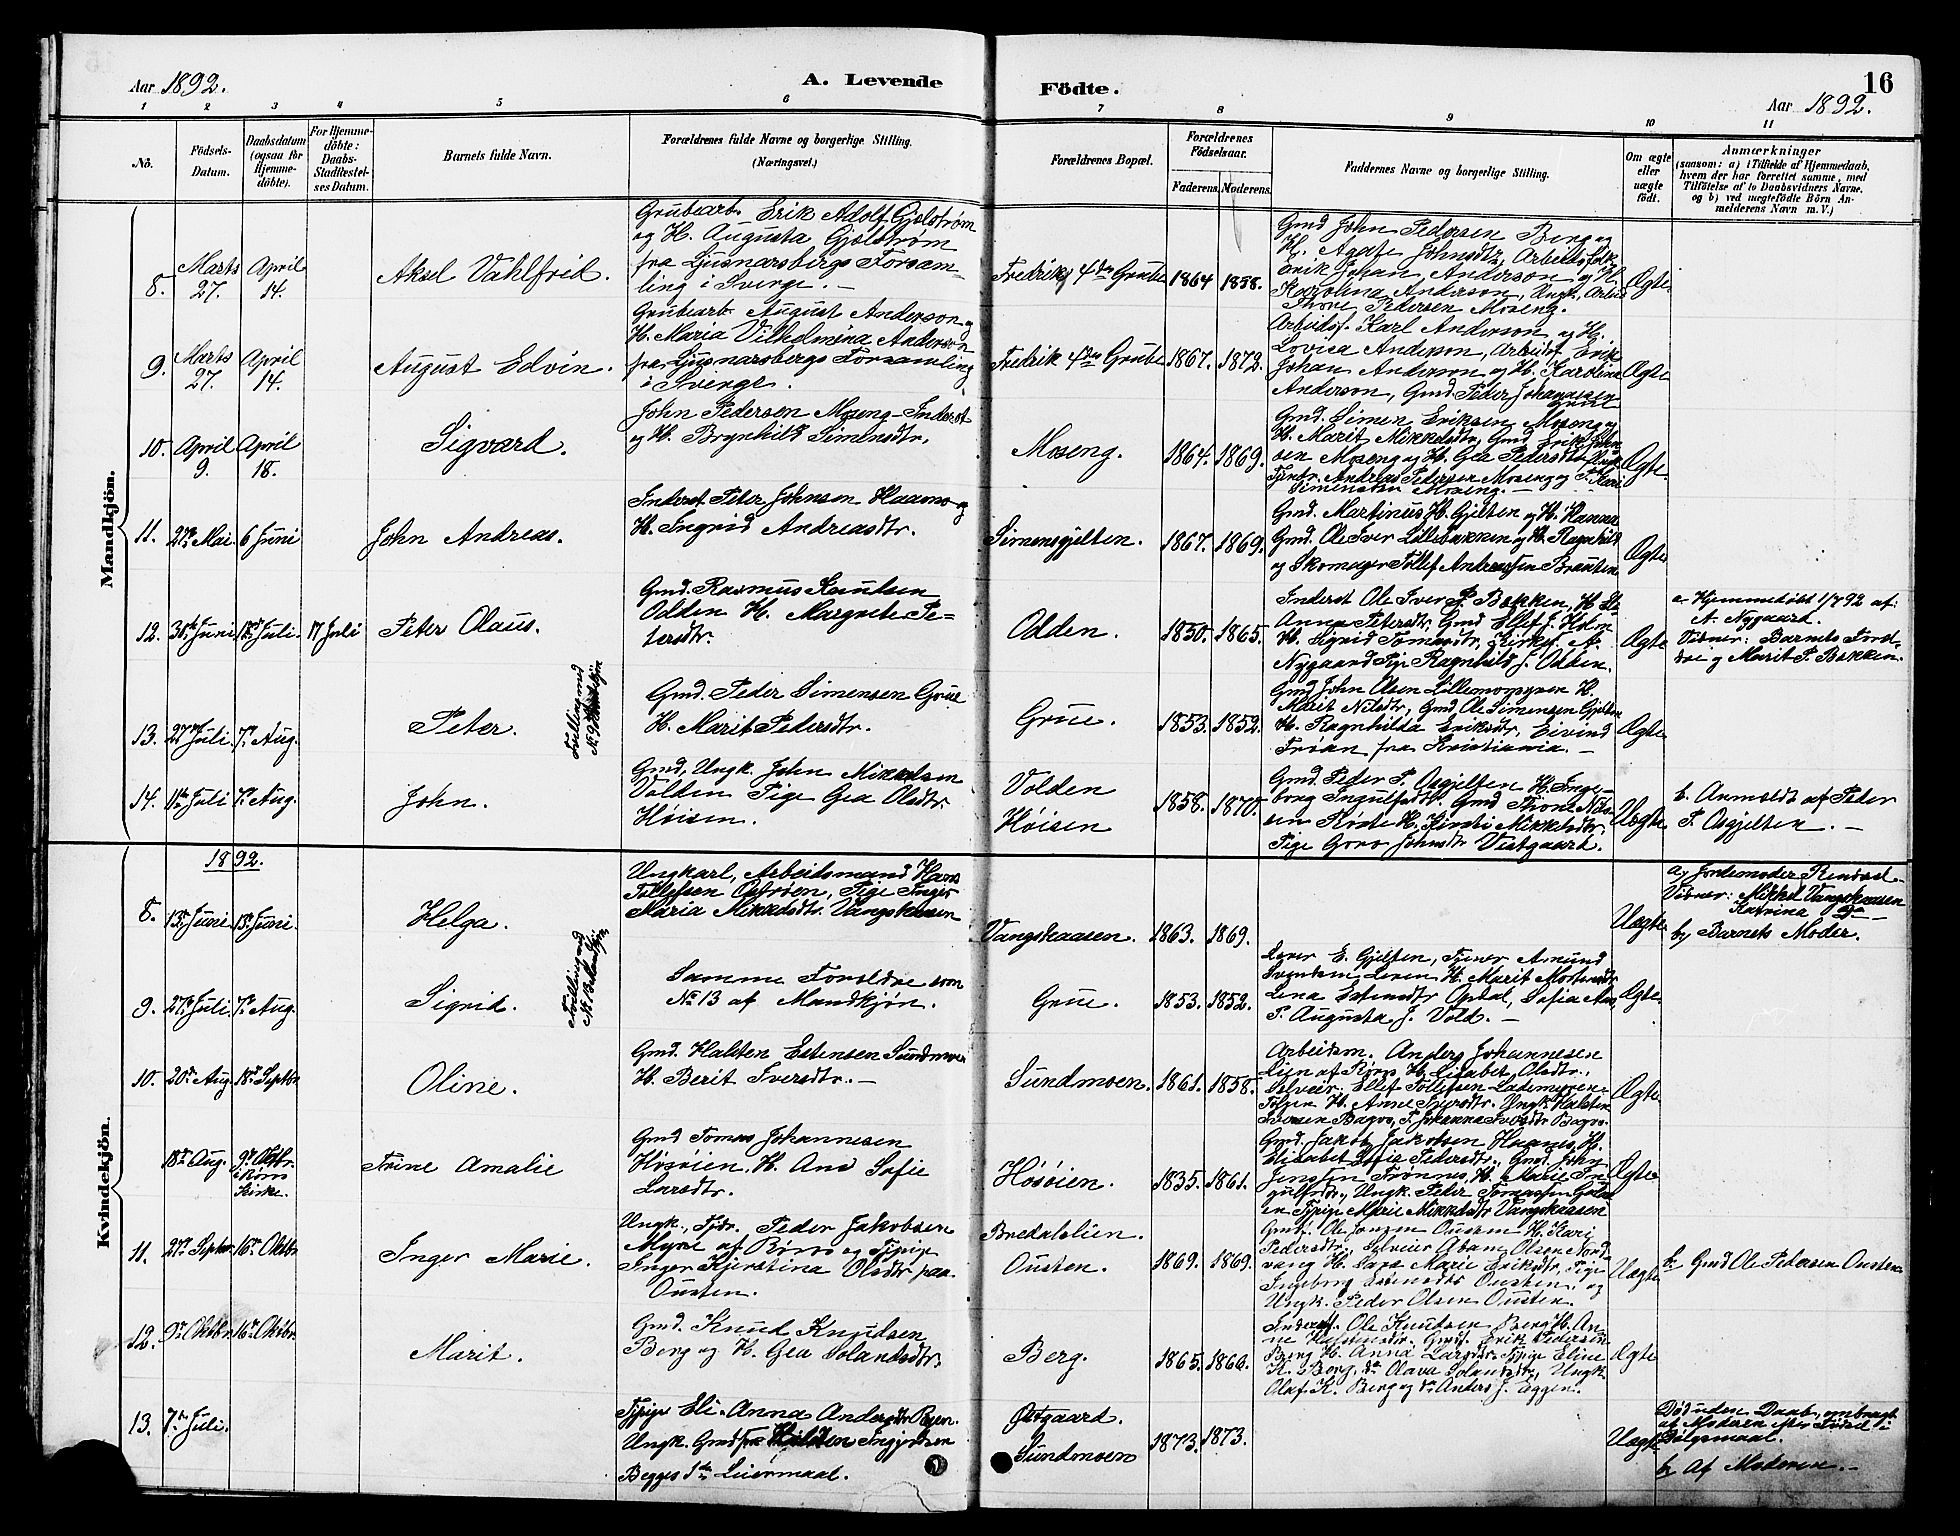 Aar 1892.
A. Levende Födte.
16
Aar 1892.
1 2 3 4 5 6 7 8 9 10 11
No.
Födsels-
Datum.
Daabsdatum
(ogsaa for
Hjemme-
döbte).
For Hjemme-
döbte:
Daabs-
Stadfæstel-
ses Datum.
Barnets fulde Navn.
Forældrenes fulde Navne og borgerlige Stilling.
(Næringsvei.)
Forældrenes Bopæl.
Forældrenes
Födselsaar.
Faderens. Moderens.
Faddernes Navne og borgerlige Stilling.
Om ægte
eller
uægte
født.
Anmærkninger
(saasom: a) i Tilfælde af Hjemmedaab,
hvem der har forrettet samme, med
Tilføielse af to Daabsvidners Navne.
og b) ved uægtefödte Börn An-
melderens Navn m. V.)
Mandkjön.
8. Marts 27. April 14. Aksel Vahlfrid.
Grubearb. Erik Adolf Gjølstrøm
og H. Augusta Gjølstrøm
fra Ljusnarsbergs Forsam-
ling i Sverge. —
Fredriks 4de Grube 1864 1858.
Gmd John Pedersen Berg og
H. Agate Johnsdtr, Arbeidsfolk
Erik Johan Anderson og H.
Karolina Anderson, Ungk., Arbeid
Thore Pedersen Moseng.
Ægte.
9. Marts 27. April 14. August Edvin.
Grubearb. August Anderson og
H. Maria Vilhelmina Anderson
fra Ljusnarsbergs Forsamling
i Sverge.
Fredrik 4de Grube 1867. 1872.
Arbeidsf. Karl Anderson og H.
Lovisa Anderson, Arbeidsf Erik
Johan Anderson og H. Karolina
Anderson, Gmd Peder Johannesen
Grue
Ægte
10. April 9. April 18. Sigvard.
John Pedersen Moseng-Inderst
og H. Brynhild Simensdtr.
Moseng. 1864. 1869.
Gmd. Simen Eriksen Moseng og
H. Marit Mikkelsdtr, Gmd Erik John-
sen Moseng og H. Gea Pedersdtr, Ungk
Tjendr. Andreas Pedersen Moseng og P. Kari
Simensdtr Moseng. —
Ægte.
11. 27de Mai 6 Juni John Andreas.
Inderst Peter Johnsen Haamo og
H. Ingrid Andreasdtr.
Simensgjelten. 1867. 1869.
Gmd. Martinus H. Gjelten og H. Hanna
Gmd. Ole Iver Lillebakken og H. Ragnhild
og Skomager Tollef Andreassen Brauten
Ægte
12. 30te Juni 17de Juli. 17 Juli Peter Olaus.
Gmd. Rasmus Knudsen
Odden H. Margrete Pe-
tersdtr.
Odden. 1850. 1865.
Inderst Ole Iver P. Bakken, H.
Anna Petersdtr, Gmd Ellef J. Holm
H. Sigrid Tomasdtr, Kirkes. A.
Nygaard Pige Ragnhild J. Odden.
Ægte
a. Hjemmedøbt 1/7 92 af:
A. Nygaard.
Vidner: Barnets Foræl-
dre og Marit P. Bakken.
13. 27de Juli 7de Aug. Peter.
Tvilling med
No 9 Kvindekjön
Gmd. Peder Simensen Grue
H. Marit Pedersdtr.
Grue. 1853. 1852.
Gmd John Olsen Lillemomyren H.
Marit Nilsdtr, Gmd Ole Simensen Gjelten
H. Ragnhilda Eriksdtr, Eivind
Trøan fra Kristiania. —
Ægte
14. 11te Juli 7de Aug. John.
Gmd, Ungk. John Mikkelsen
Volden Pige Gea Olsdtr
Høisen.
Volden
Høisen 1858. 1870.
Gmd. Peder P. Osgjelten H. Inge-
borg Ingulfsdtr. Gmd Trone Nils-
sen Røste H. Kirsti Mikkelsdtr.
Pige Goro Johnsdtr Vestgaard.
Uægte
b. Anmeldt af Peder
P. Osgjelten. —
Kvindekjön.
1892.
8. 13de Juni 13de Juni. Helga.
Ungkarl, Arbeidsmand Hans
Tollefsen Østrøen, Pige Inger
Maria Mikkelsdtr. Vangskaasen
Vangskaasen. 1863. 1869.
Uægte
a, Jordemoder Rindal
Vidner: Mikkel Vangskaasen
Katrina do —
b, Barnets Moder.
9. 27de Juli. 7de Aug. Sigrid.
Tvilling med
No 13 Mandkjön
Samme Foreldre som
No 13 af Mandkjøn.
Grue. 1853. 1852.
Iver E. Gjelten, Tjener Amund
Svendsen Leren H. Marit Mortensdtr
Lena Estensdtr Opdal, Sofia Aas,
P. Augusta J. Vold. —
Ægte.
10. 20de Aug. 18de Septbr Oline.
Gmd. Halsten Estensen Sundmoen
H. Berit Iversdtr. —
Sundmoen. 1861. 1858.
Arbeidsm. Anders Johannesen
Lien af Røros H. Lisabet Olsdtr.,
Selveir. Ellef Tollefsen Lademyren-
Tolgen H. Anne Iversdtr. Ungk Halsten
Iversen Bagos, P. Johanna Iversdtr Bagos.
Ægte.
18de Aug. 9de Oktbr. i Røros Kirke. Trine Amalie
Gmd Tomas Johannesen
Høsøien, H. Ane Sofie
Larsdtr.
Høsøien. 1835. 1861.
Gmd. Jakob Jakobsen Haanes, H.
Elisabet Sofie Pedersdtr. Gmd John
Jenssen Trønnes, H. Marie In-
gulfsdtr., Ungk. Peter Tomassen
Tjpige Marie Mikkelsdtr Vangskaasen
Ægte
11. 27de Septbr. 16de Oktbr Inger Marie.
Ungk., Tjdr. Peder Jakobsen
Myre af Røros og Tjpige
Inger Kjerstina Olsdtr paa
Ousten.
Bredalslien.
Ousten. 1869. 1869.
Gmd. Ole Jonsen Ousten H. Kari
Pedersdtr., Selveier Abam Olsen Nord-
vang H. Sara Marie Eriksdtr, Pige
Ingeborg Estensdtr Ousten, og
Ungk. Peder Olsen Ousten.
Uægte
b. Gmd Ole Pedersen Ousten
12. 9de Oktbr. 16de Oktbr. Marit.
Gmd. Knud Knudsen
Berg og H. Gea Tolandsdtr.
Berg. 1865. 1860.
Inderst. Ole Knudsen Berg H. An-
ne Halstensdtr. Gmdf. Erik Pedersen
Berg H. Anna Larsdtr. Tjpige Eline
K. Berg, do Olava Tolandsdtr, Ungk
Olaf K. Berg og do Anders J. Eggen.
Ægte
13. 7de Juli.
Tjpige Eli-Anna Andersdtr Ryen.
Ungk. Gmdf Halsten Ingjerdsen
Begges 1ste Leiermaal.
Østgaard.
Sundmoen 1873. 1873.
Uægte
Død uden Daab, ombragt
af Moderen ved Fødsel i
Dølgsmaal.
b, Af Moderen. —